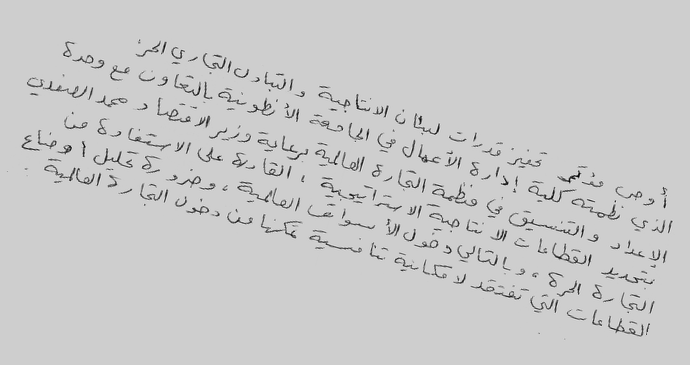 أوصى مؤتمر تحفيز قدرات لبنان الانتاجية والتبادل التجاري الحر،
الذي نظمته كلية إدارة الأعمال في الجامعة الأنطونية بالتعاون مع وحدة
الإعداد والتنسيق في منظمة التجارة العالمية برعاية وزير الاقتصاد محمد الصفدي
بتحديد القطاعات الانتاجية الاستراتيجية، القادرة على الاستفادة من
التجارة الحرة، وبالتالي دخول الأسواق العالمية، وضرورة تحليل اوضاع
القطاعات التي تفتقد لامكانية تنافسية تمكنها من دخول التجارة العالمية.